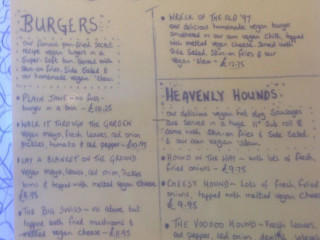 BURGERS
our famous pan-fried secret
recipe vegan burger in a
super-soft bun served with
skin-on fries, side salad &
our handmade vegan 'slaw.
• PLAIN JANE - no fuss -
burger in a bun - £10.25
• WALK IT THROUGH THE GARDEN
vegan mayo, fresh leaves, red onion,
pickles, tomato & red pepper - £10.95
• LAY A BLANKET ON THE GROUND
vegan mayo, leaves, red onion, pickles,
toms & topped with melted vegan cheese
• THE BIG SWISS - as above but
topped with fried mushrooms &
melted vegan cheese - £11.95
• WRECK OF THE OLD '97
our delicious handmade vegan burger
smothered in our own vegan chilli, topped
with melted vegan cheese. Served with
side salad, skin-on fries & our
vegan 'slaw - £12.75
HEAVENLY HOUNDS.
our delicious vegan hot dog sausages
are served in a huge 11" sub roll &
come with skin-on fries & side salad
& our own vegan 'slaw.
• HOUND IN THE HAY - with lots of fresh,
fried onions - £9.75
• CHEESY HOUND - lots of fresh, fried
onions, topped with melted vegan cheese
£9.95
• THE VOODOO HOUND - Fresh leaves,
red pepper, red onion,